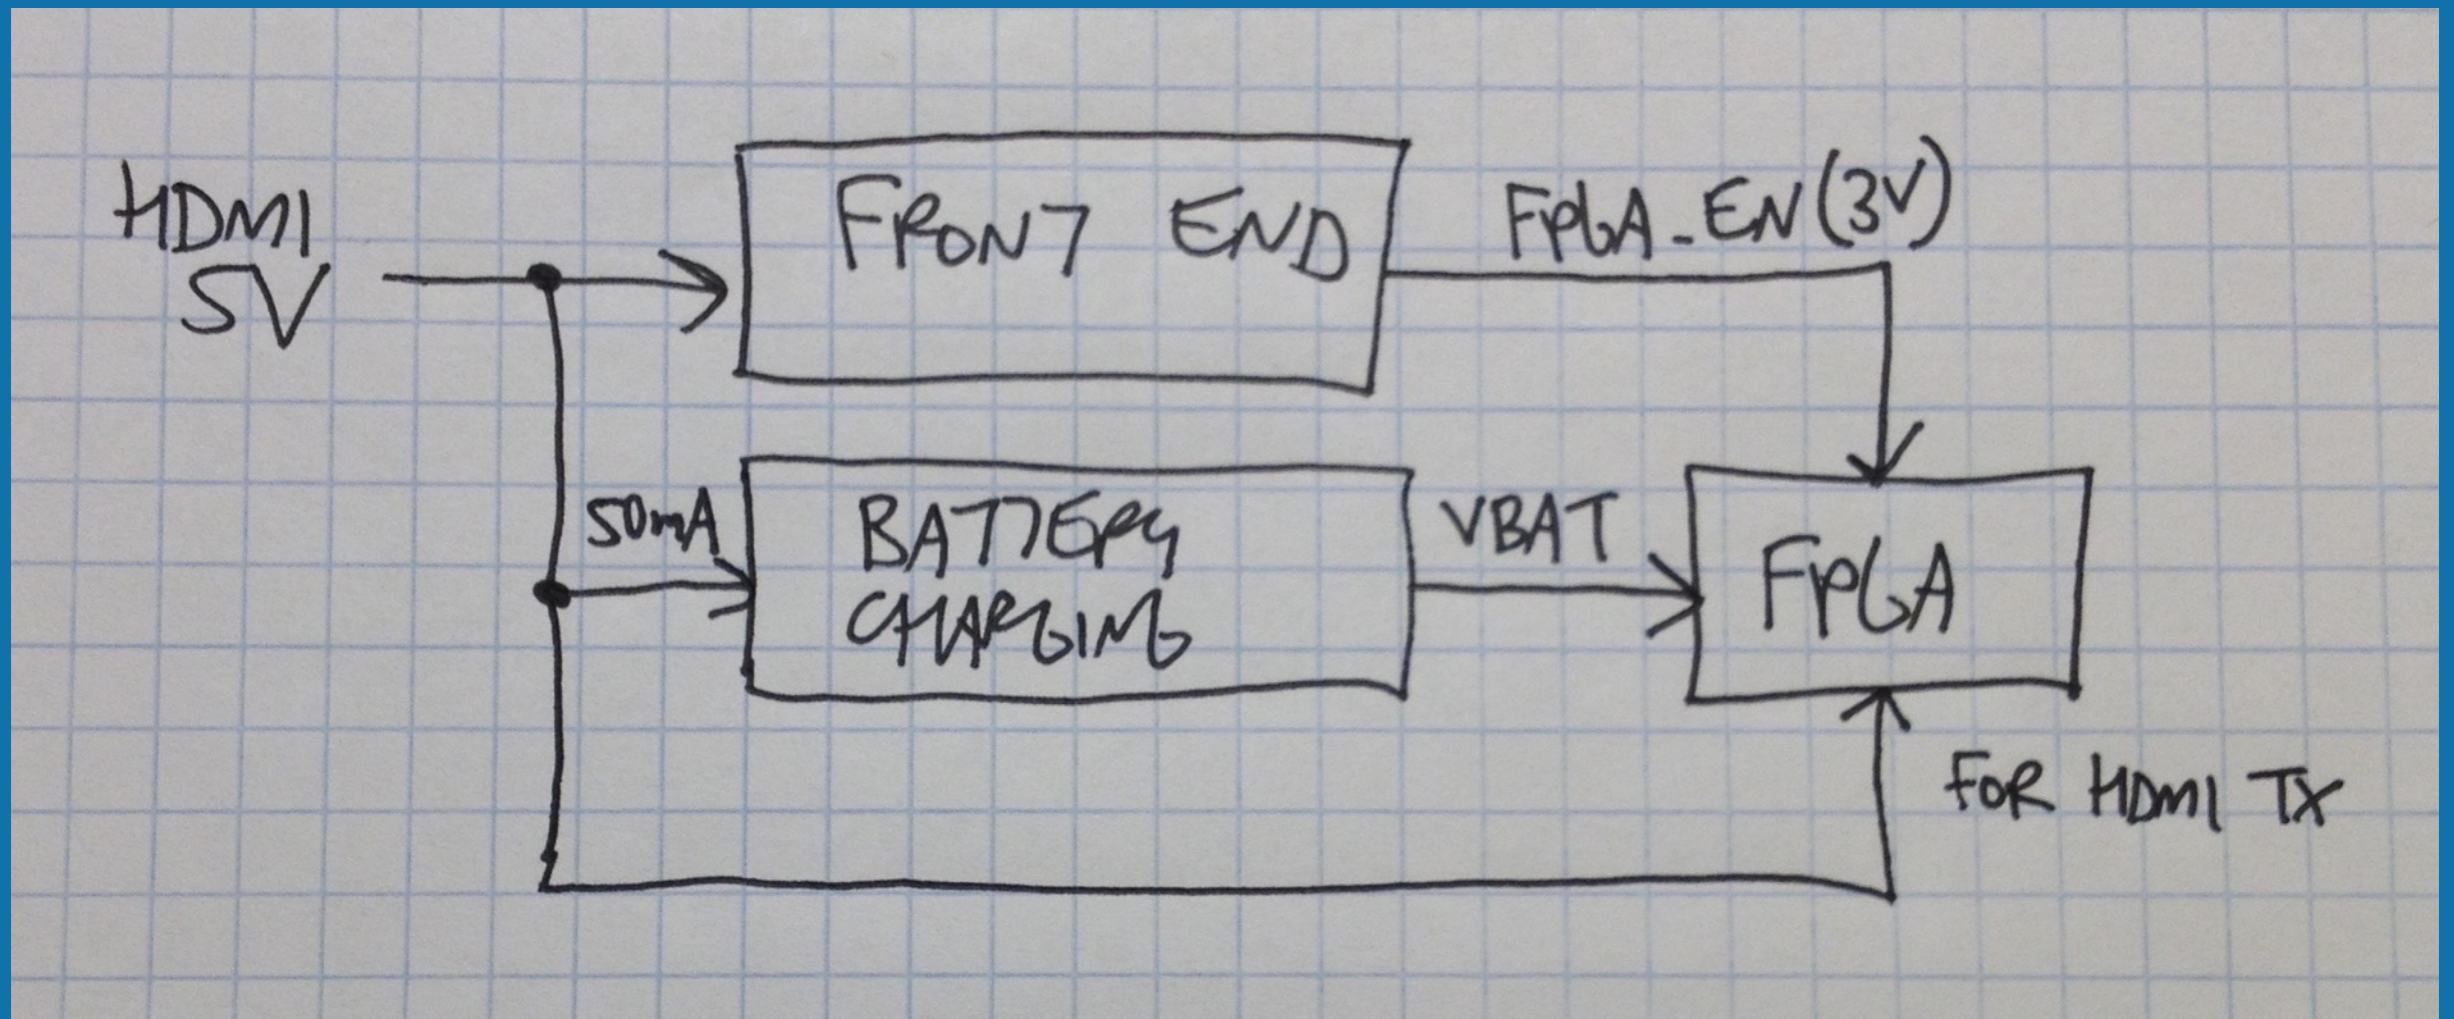 HDMI
5V
FRONT END
FPGA_EN (3V)
50mA
BATTERY
CHARGING
VBAT
FPGA
FOR HDMI TX